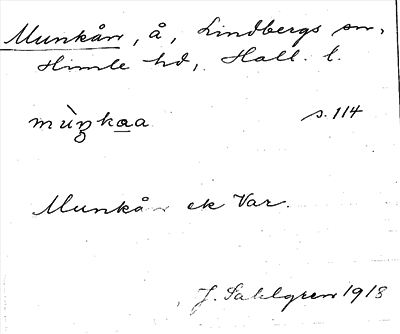 Munkån, å, Lindbergs sn,
Himle hd, Hall. l.
mùŋkaa s. 114
Munkån ek Var.
J. Sahlgren 1918